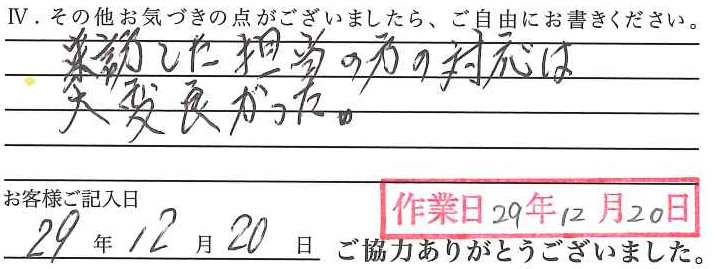 Ⅳ．その他お気づきの点がございましたら、ご自由にお書きください。
来訪した担当の方の対応は
大変良かった。
お客様ご記入日
29年12月20日
作業日29年12月20日
ご協力ありがとうございました。